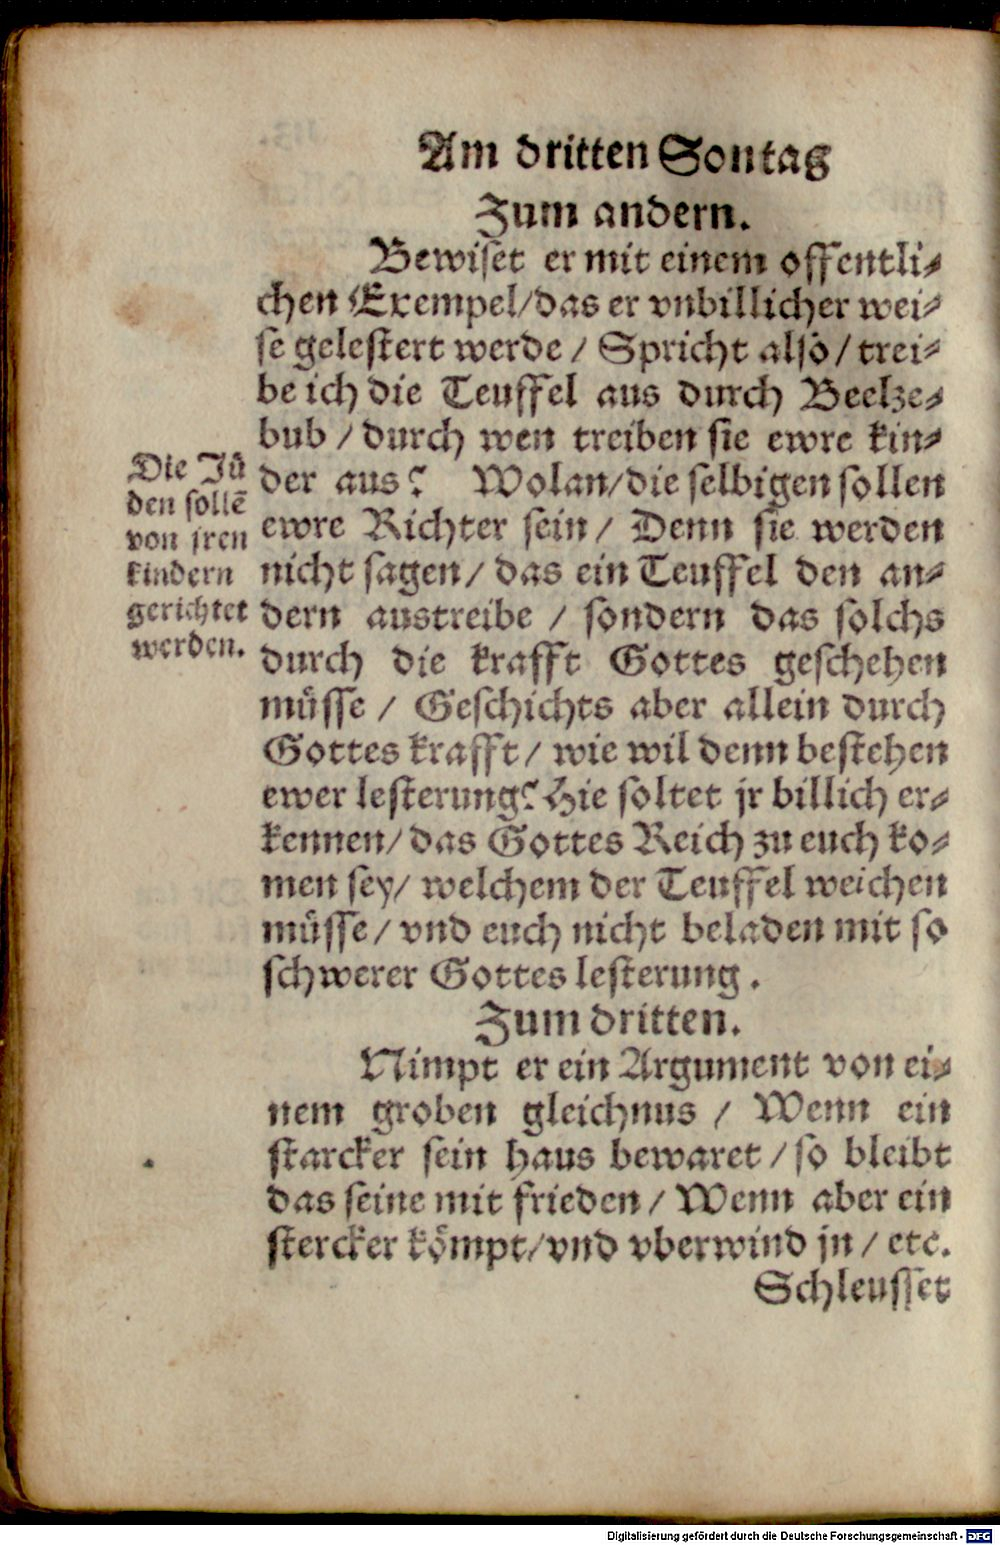 Am dritten Sontag
Zum andern.
Bewiset er mit einem offentli⸗
chen Exempel/das er vnbillicher wei⸗
se gelestert werde / Spricht also/ trei⸗
be ich die Teuffel aus durch Beelze⸗
bub / durch wen treiben sie ewre kin⸗
der aus? Wolan/die selbigen sollen
ewre Richter sein/ Denn sie werden
nicht sagen/ das ein Teuffel den an⸗
dern austreibe / sondern das solchs
durch die krafft Gottes geschehen
müsse / Geschichts aber allein durch
Gottes krafft/ wie wil denn bestehen
ewer lesterung? Hie soltet jr billich er⸗
kennen/ das Gottes Reich zu euch ko⸗
men sey/ welchem der Teuffel weichen
müsse/ vnd euch nicht beladen mit so
schwerer Gottes lesterung.
Die Jü
den sollē
von jren
kindern
gerichtet
werden.
Zum dritten.
Nimpt er ein Argument von ei⸗
nem groben gleichnus / Wenn ein
starcker sein haus bewaret / so bleibt
das seine mit frieden / Wenn aber ein
stercker kömpt/vnd vberwind jn / etc.
Schleusset
Digitalisierung gefördert durch die Deutsche Forschungsgemeinschaft - DFG